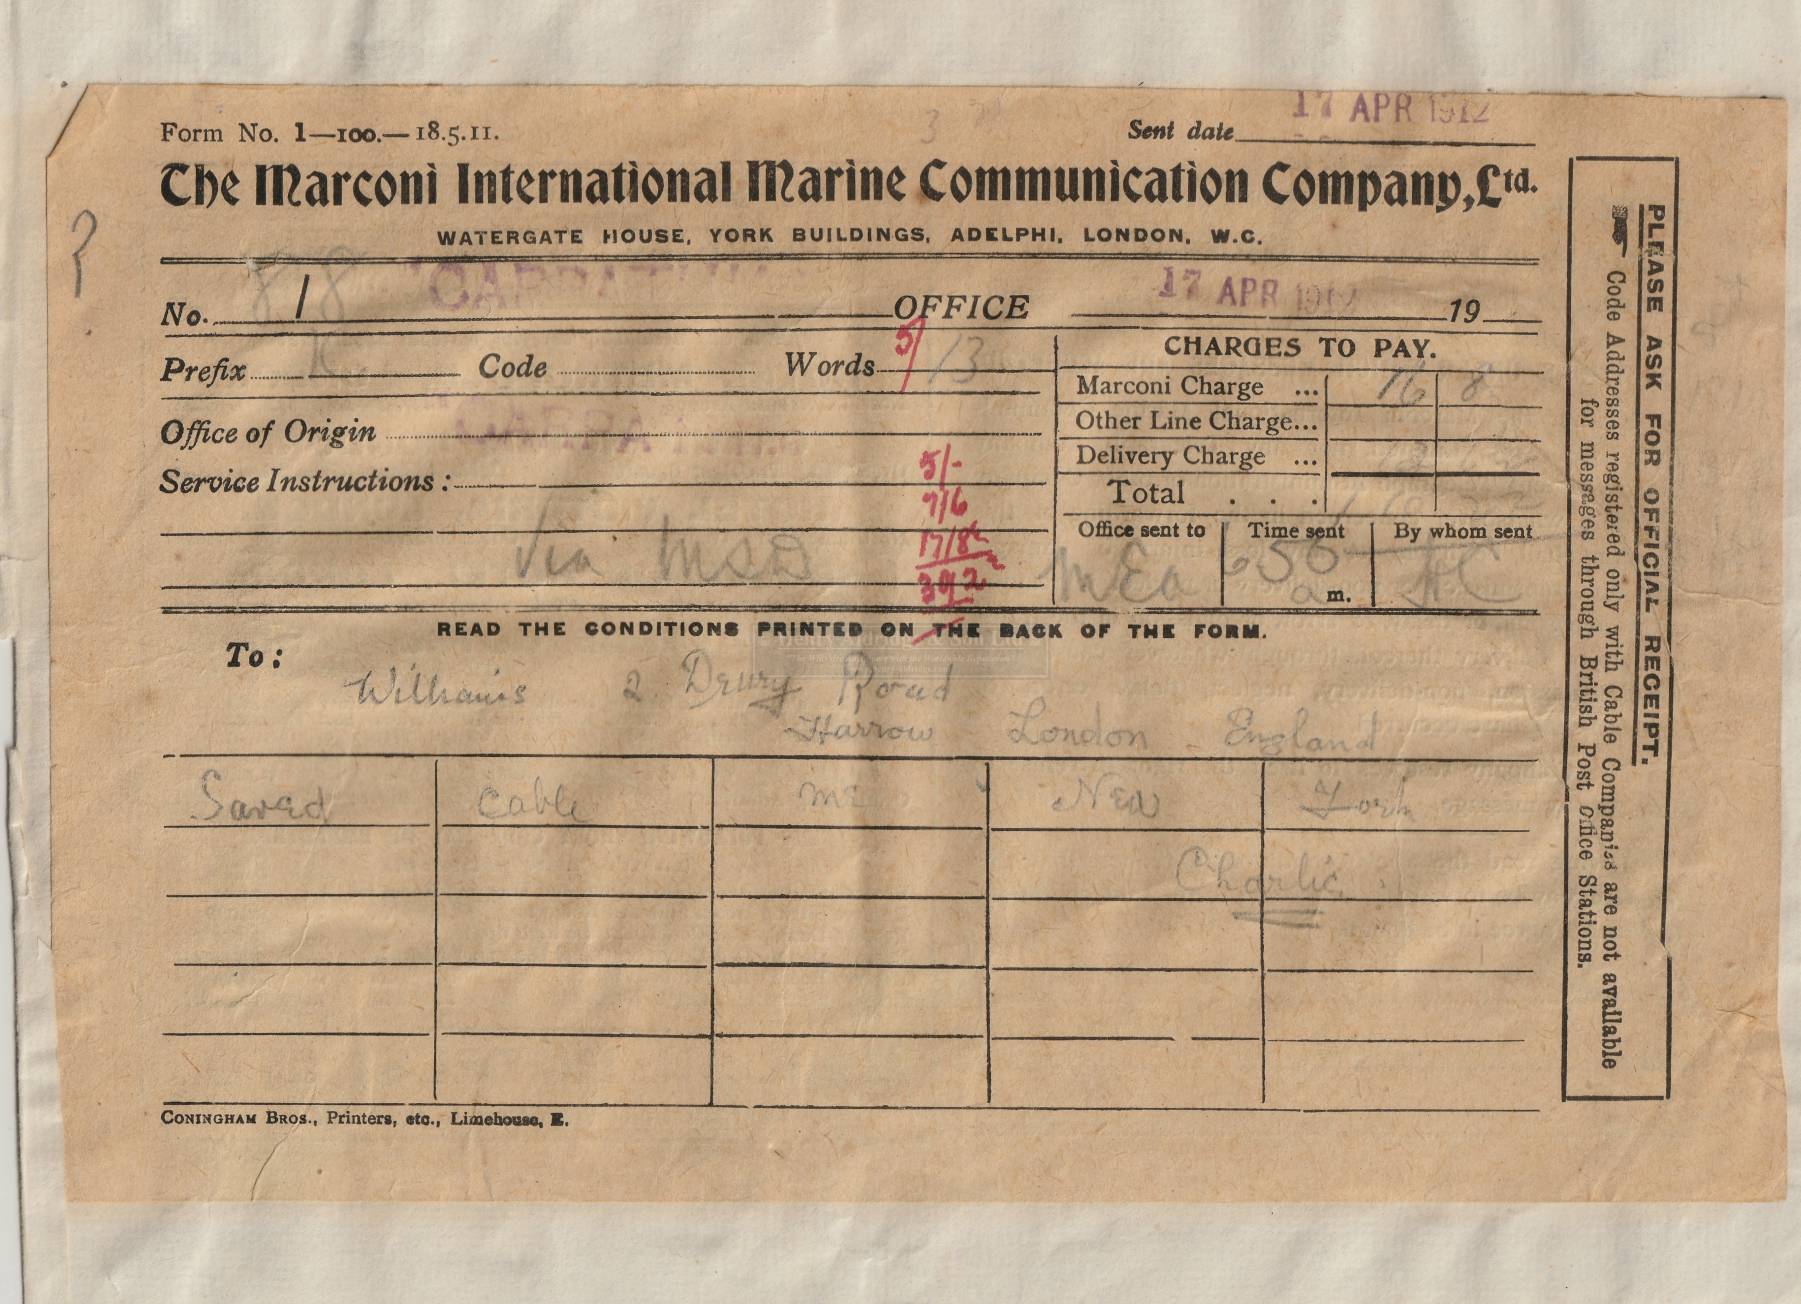 17 APR 1912
Form No. 1—100.—18.5.11.
Sent date
The Marconi International Marine Communication Company, Ltd.
WATERGATE HOUSE, YORK BUILDINGS, ADELPHI, LONDON, W.C.
No. 1 OFFICE 17 APR 1912 19
Prefix Code Words 5/ 13
CHARGES TO PAY.
Marconi Charge ... 16 8
Other Line Charge...
Delivery Charge ...
Total . . .
Office of Origin
Service Instructions :
5/-
7/6
Via MSD
Office sent to Time sent By whom sent
MEa 650 a m.
READ THE CONDITIONS PRINTED ON THE BACK OF THE FORM.
To: Williams 2 Drury Road
Harrow London England
Saved Cable me New York
Charlie
CONINGHAM BROS., Printers, etc., Limehouse, E.
PLEASE ASK FOR OFFICIAL RECEIPT.
Code Addresses registered only with Cable Companies are not available
for messages through British Post Office Stations.